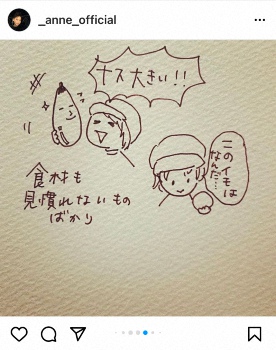 _anne_official
ナス大きい!!
このイモは
なんだ…
食材も
見慣れないもの
ばかり